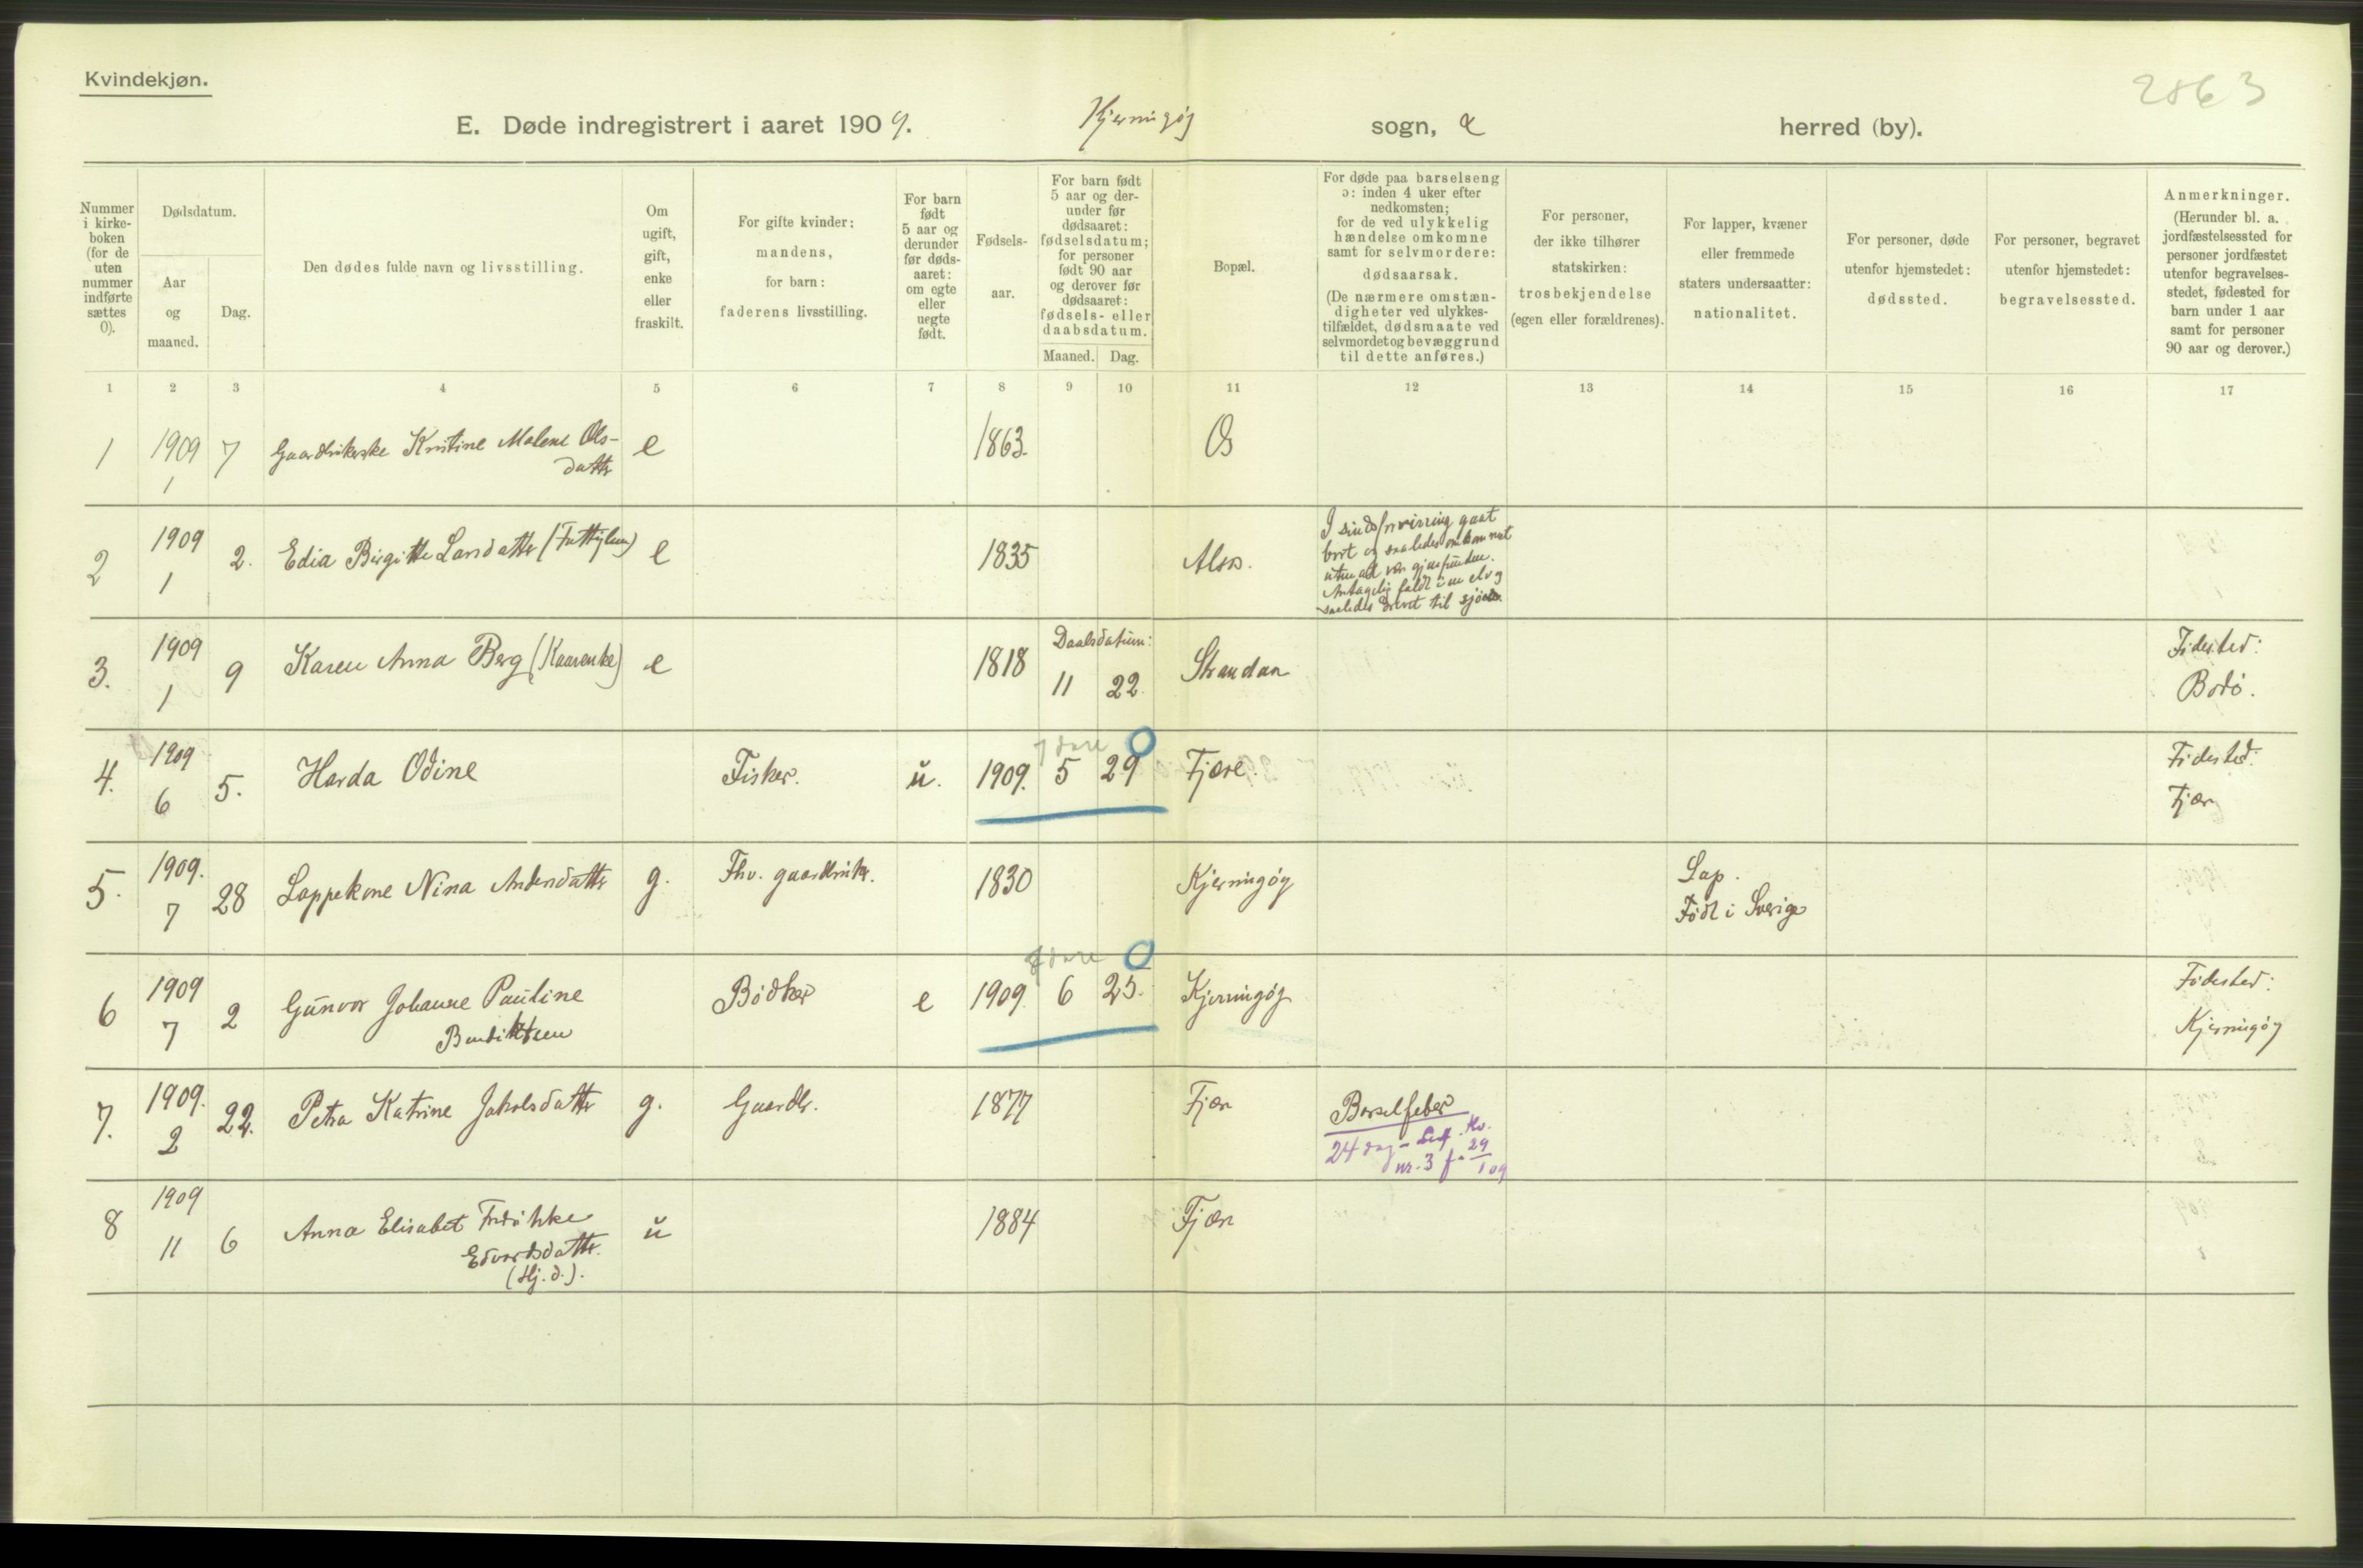 Kvindekjøn.
2863
E. Døde indregistrert i aaret 1909. Kjerringøy sogn, & herred (by).
Nummer i kirkeboken (for de uten nummer indførte sættes 0).
Dødsdatum.
Aar og maaned.
Dag.
Den dødes fulde navn og livsstilling.
Om ugift, gift, enke eller fraskilt.
For gifte kvinder: mandens, for barn: faderens livsstilling.
For barn født 5 aar og derunder før dødsaaret: om egte eller uegte født.
Fødselsaar.
For barn født 5 aar og derunder før dødsaaret: fødselsdatum; for personer født 90 aar og derover før dødsaaret: fødsels- eller daabsdatum.
Maaned. Dag.
Bopæl.
For døde paa barselseng ɔ: inden 4 uker efter nedkomsten; for de ved ulykkelig hændelse omkomne samt for selvmordere: dødsaarsak. (De nærmere omstændigheter ved ulykkestilfældet, dødsmaate ved selvmordet og bevæggrund til dette anføres.)
For personer, der ikke tilhører statskirken: trosbekjendelse (egen eller forældrenes).
For lapper, kvæner eller fremmede staters undersaatter: nationalitet.
For personer, døde utenfor hjemstedet: dødssted.
For personer, begravet utenfor hjemstedet: begravelsessted.
Anmerkninger. (Herunder bl. a. jordfæstelsessted for personer jordfæstet utenfor begravelsesstedet, fødested for barn under 1 aar samt for personer 90 aar og derover.)
1 2 3 4 5 6 7 8 9 10 11 12 13 14 15 16 17
1 1909 1 7 Gaardbrukerske Kristine Malene Olsdatter e 1863. Os
2 1909 1 2. Edia Birgitte Larsdatter e 1835 Alsos.
I sindsforvirring gaat
bort og saaledes omkommet
uten at være gjenfunden.
Antagelig faldt i en elv og
saaledes drevet til sjøen.
3. 1909 1 9 Karen Anna Berg (Kaarenke) e 1818 Daabsdatum: 11 22. Strandan Fødested: Bodø.
4. 1909 6 5. Harda Odine Fisker. u. 1909. 7 dare 5 29 0 Fjære. Fødested: Fjær
5. 1909. 7 28 Lappekone Nina Andersdatter g. Fhv. gaardbruker. 1830 Kjerringøy Lap. Født i Sverige
6 1909 7 2 Gunvor Johanne Pauline Bendiktsen Bødker e 1909. dare 6 25. 0 Kjerringøy Fødested: Kjerringøy
7. 1909. 2 22. Petra Katrine Jakobsdatter g. Gaardb. 1877 Fjær Barselfeber
24 dag - Lev. Kv.
nr. 3 f. 29/1 09
8 1909 11 6 Anna Elisabet Fredrikke Edvardsdatter. (Hj. d.). u 1884 Fjær